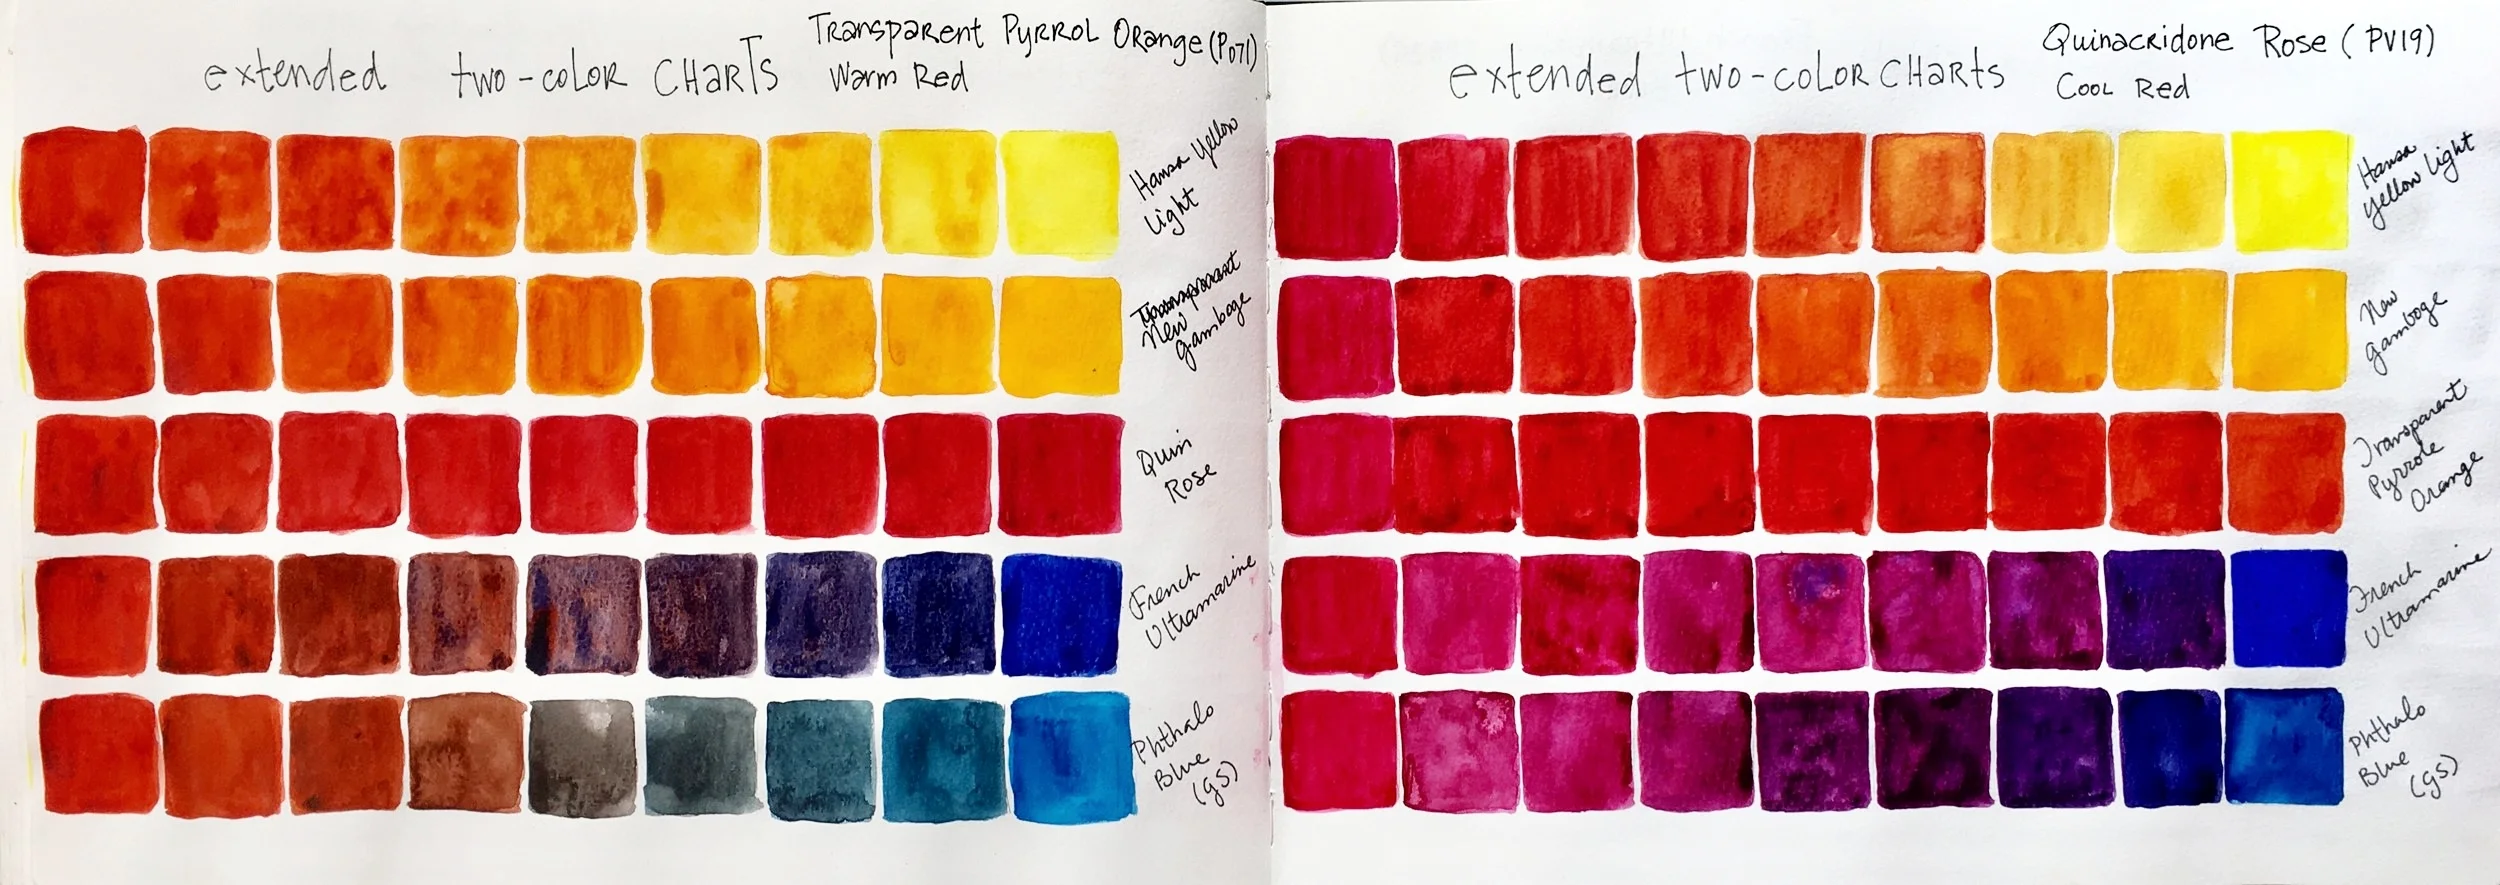 extended two-color CHARTS
Transparent Pyrrol Orange (PO71)
Warm Red
Hansa Yellow
Light
Transparant
New
gamboge
Quin
Rose
French
Ultramarine
Phthalo
Blue
(GS)
extended two-color CHARTS
Quinacridone Rose (PV19)
Cool Red
Hansa
yellow light
New
gamboge
Transparent
Pyrrole
Orange
French
Ultramarine
Phthalo
Blue
(GS)